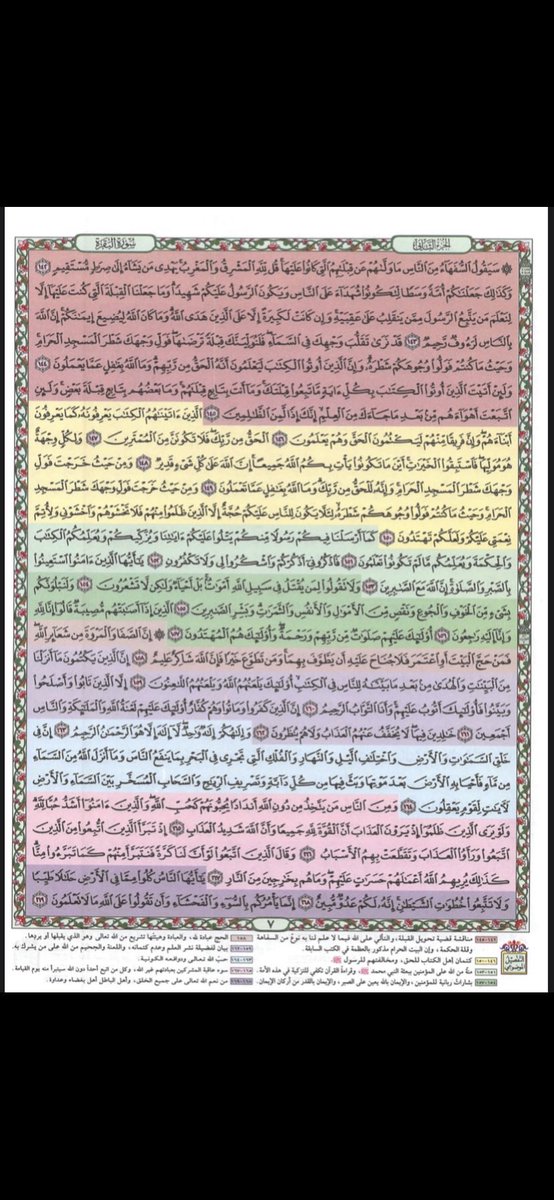 سُورَةُ البَقَرَةِ
الجزء الثاني
۞ سَيَقُولُ السُّفَهَاءُ مِنَ النَّاسِ مَا وَلَّىٰهُمْ عَن قِبْلَتِهِمُ الَّتِي كَانُوا عَلَيْهَا قُل لِّلَّهِ الْمَشْرِقُ وَالْمَغْرِبُ يَهْدِي مَن يَشَاءُ إِلَىٰ صِرَٰطٍ مُّسْتَقِيمٍ ١٤٢
وَكَذَٰلِكَ جَعَلْنَٰكُمْ أُمَّةً وَسَطًا لِّتَكُونُوا شُهَدَاءَ عَلَى النَّاسِ وَيَكُونَ الرَّسُولُ عَلَيْكُمْ شَهِيدًا وَمَا جَعَلْنَا الْقِبْلَةَ الَّتِي كُنتَ عَلَيْهَا إِلَّا
لِنَعْلَمَ مَن يَتَّبِعُ الرَّسُولَ مِمَّن يَنقَلِبُ عَلَىٰ عَقِبَيْهِ وَإِن كَانَتْ لَكَبِيرَةً إِلَّا عَلَى الَّذِينَ هَدَى اللَّهُ وَمَا كَانَ اللَّهُ لِيُضِيعَ إِيمَٰنَكُمْ إِنَّ اللَّهَ
بِالنَّاسِ لَرَءُوفٌ رَّحِيمٌ ١٤٣ قَدْ نَرَىٰ تَقَلُّبَ وَجْهِكَ فِي السَّمَاءِ فَلَنُوَلِّيَنَّكَ قِبْلَةً تَرْضَىٰهَا فَوَلِّ وَجْهَكَ شَطْرَ الْمَسْجِدِ الْحَرَامِ
وَحَيْثُ مَا كُنتُمْ فَوَلُّوا وُجُوهَكُمْ شَطْرَهُ وَإِنَّ الَّذِينَ أُوتُوا الْكِتَٰبَ لَيَعْلَمُونَ أَنَّهُ الْحَقُّ مِن رَّبِّهِمْ وَمَا اللَّهُ بِغَٰفِلٍ عَمَّا يَعْمَلُونَ ١٤٤
وَلَئِنْ أَتَيْتَ الَّذِينَ أُوتُوا الْكِتَٰبَ بِكُلِّ ءَايَةٍ مَّا تَبِعُوا قِبْلَتَكَ وَمَا أَنتَ بِتَابِعٍ قِبْلَتَهُمْ وَمَا بَعْضُهُم بِتَابِعٍ قِبْلَةَ بَعْضٍ وَلَئِنِ
اتَّبَعْتَ أَهْوَاءَهُم مِّن بَعْدِ مَا جَاءَكَ مِنَ الْعِلْمِ إِنَّكَ إِذًا لَّمِنَ الظَّٰلِمِينَ ١٤٥ الَّذِينَ ءَاتَيْنَٰهُمُ الْكِتَٰبَ يَعْرِفُونَهُ كَمَا يَعْرِفُونَ
أَبْنَاءَهُمْ وَإِنَّ فَرِيقًا مِّنْهُمْ لَيَكْتُمُونَ الْحَقَّ وَهُمْ يَعْلَمُونَ ١٤٦ الْحَقُّ مِن رَّبِّكَ فَلَا تَكُونَنَّ مِنَ الْمُمْتَرِينَ ١٤٧ وَلِكُلٍّ وِجْهَةٌ
هُوَ مُوَلِّيهَا فَاسْتَبِقُوا الْخَيْرَٰتِ أَيْنَ مَا تَكُونُوا يَأْتِ بِكُمُ اللَّهُ جَمِيعًا إِنَّ اللَّهَ عَلَىٰ كُلِّ شَيْءٍ قَدِيرٌ ١٤٨ وَمِنْ حَيْثُ خَرَجْتَ فَوَلِّ
وَجْهَكَ شَطْرَ الْمَسْجِدِ الْحَرَامِ وَإِنَّهُ لَلْحَقُّ مِن رَّبِّكَ وَمَا اللَّهُ بِغَٰفِلٍ عَمَّا تَعْمَلُونَ ١٤٩ وَمِنْ حَيْثُ خَرَجْتَ فَوَلِّ وَجْهَكَ شَطْرَ الْمَسْجِدِ
الْحَرَامِ وَحَيْثُ مَا كُنتُمْ فَوَلُّوا وُجُوهَكُمْ شَطْرَهُ لِئَلَّا يَكُونَ لِلنَّاسِ عَلَيْكُمْ حُجَّةٌ إِلَّا الَّذِينَ ظَلَمُوا مِنْهُمْ فَلَا تَخْشَوْهُمْ وَاخْشَوْنِي وَلِأُتِمَّ
نِعْمَتِي عَلَيْكُمْ وَلَعَلَّكُمْ تَهْتَدُونَ ١٥٠ كَمَا أَرْسَلْنَا فِيكُمْ رَسُولًا مِّنكُمْ يَتْلُوا عَلَيْكُمْ ءَايَٰتِنَا وَيُزَكِّيكُمْ وَيُعَلِّمُكُمُ الْكِتَٰبَ
وَالْحِكْمَةَ وَيُعَلِّمُكُم مَّا لَمْ تَكُونُوا تَعْلَمُونَ ١٥١ فَاذْكُرُونِي أَذْكُرْكُمْ وَاشْكُرُوا لِي وَلَا تَكْفُرُونِ ١٥٢ يَٰأَيُّهَا الَّذِينَ ءَامَنُوا اسْتَعِينُوا
بِالصَّبْرِ وَالصَّلَوٰةِ إِنَّ اللَّهَ مَعَ الصَّٰبِرِينَ ١٥٣ وَلَا تَقُولُوا لِمَن يُقْتَلُ فِي سَبِيلِ اللَّهِ أَمْوَٰتٌ بَلْ أَحْيَاءٌ وَلَٰكِن لَّا تَشْعُرُونَ ١٥٤ وَلَنَبْلُوَنَّكُم
بِشَيْءٍ مِّنَ الْخَوْفِ وَالْجُوعِ وَنَقْصٍ مِّنَ الْأَمْوَٰلِ وَالْأَنفُسِ وَالثَّمَرَٰتِ وَبَشِّرِ الصَّٰبِرِينَ ١٥٥ الَّذِينَ إِذَا أَصَٰبَتْهُم مُّصِيبَةٌ قَالُوا إِنَّا لِلَّهِ
وَإِنَّا إِلَيْهِ رَٰجِعُونَ ١٥٦ أُولَٰئِكَ عَلَيْهِمْ صَلَوَٰتٌ مِّن رَّبِّهِمْ وَرَحْمَةٌ وَأُولَٰئِكَ هُمُ الْمُهْتَدُونَ ١٥٧ ۞ إِنَّ الصَّفَا وَالْمَرْوَةَ مِن شَعَائِرِ اللَّهِ
فَمَنْ حَجَّ الْبَيْتَ أَوِ اعْتَمَرَ فَلَا جُنَاحَ عَلَيْهِ أَن يَطَّوَّفَ بِهِمَا وَمَن تَطَوَّعَ خَيْرًا فَإِنَّ اللَّهَ شَاكِرٌ عَلِيمٌ ١٥٨ إِنَّ الَّذِينَ يَكْتُمُونَ مَا أَنزَلْنَا
مِنَ الْبَيِّنَٰتِ وَالْهُدَىٰ مِن بَعْدِ مَا بَيَّنَّٰهُ لِلنَّاسِ فِي الْكِتَٰبِ أُولَٰئِكَ يَلْعَنُهُمُ اللَّهُ وَيَلْعَنُهُمُ اللَّٰعِنُونَ ١٥٩ إِلَّا الَّذِينَ تَابُوا وَأَصْلَحُوا
وَبَيَّنُوا فَأُولَٰئِكَ أَتُوبُ عَلَيْهِمْ وَأَنَا التَّوَّابُ الرَّحِيمُ ١٦٠ إِنَّ الَّذِينَ كَفَرُوا وَمَاتُوا وَهُمْ كُفَّارٌ أُولَٰئِكَ عَلَيْهِمْ لَعْنَةُ اللَّهِ وَالْمَلَٰئِكَةِ وَالنَّاسِ
أَجْمَعِينَ ١٦١ خَٰلِدِينَ فِيهَا لَا يُخَفَّفُ عَنْهُمُ الْعَذَابُ وَلَا هُمْ يُنظَرُونَ ١٦٢ وَإِلَٰهُكُمْ إِلَٰهٌ وَٰحِدٌ لَّا إِلَٰهَ إِلَّا هُوَ الرَّحْمَٰنُ الرَّحِيمُ ١٦٣ إِنَّ فِي
خَلْقِ السَّمَٰوَٰتِ وَالْأَرْضِ وَاخْتِلَٰفِ الَّيْلِ وَالنَّهَارِ وَالْفُلْكِ الَّتِي تَجْرِي فِي الْبَحْرِ بِمَا يَنفَعُ النَّاسَ وَمَا أَنزَلَ اللَّهُ مِنَ السَّمَاءِ
مِن مَّاءٍ فَأَحْيَا بِهِ الْأَرْضَ بَعْدَ مَوْتِهَا وَبَثَّ فِيهَا مِن كُلِّ دَابَّةٍ وَتَصْرِيفِ الرِّيَٰحِ وَالسَّحَابِ الْمُسَخَّرِ بَيْنَ السَّمَاءِ وَالْأَرْضِ
لَءَايَٰتٍ لِّقَوْمٍ يَعْقِلُونَ ١٦٤ وَمِنَ النَّاسِ مَن يَتَّخِذُ مِن دُونِ اللَّهِ أَندَادًا يُحِبُّونَهُمْ كَحُبِّ اللَّهِ وَالَّذِينَ ءَامَنُوا أَشَدُّ حُبًّا لِّلَّهِ
وَلَوْ يَرَى الَّذِينَ ظَلَمُوا إِذْ يَرَوْنَ الْعَذَابَ أَنَّ الْقُوَّةَ لِلَّهِ جَمِيعًا وَأَنَّ اللَّهَ شَدِيدُ الْعَذَابِ ١٦٥ إِذْ تَبَرَّأَ الَّذِينَ اتُّبِعُوا مِنَ الَّذِينَ
اتَّبَعُوا وَرَأَوُا الْعَذَابَ وَتَقَطَّعَتْ بِهِمُ الْأَسْبَابُ ١٦٦ وَقَالَ الَّذِينَ اتَّبَعُوا لَوْ أَنَّ لَنَا كَرَّةً فَنَتَبَرَّأَ مِنْهُمْ كَمَا تَبَرَّءُوا مِنَّا
كَذَٰلِكَ يُرِيهِمُ اللَّهُ أَعْمَٰلَهُمْ حَسَرَٰتٍ عَلَيْهِمْ وَمَا هُم بِخَٰرِجِينَ مِنَ النَّارِ ١٦٧ يَٰأَيُّهَا النَّاسُ كُلُوا مِمَّا فِي الْأَرْضِ حَلَٰلًا طَيِّبًا
وَلَا تَتَّبِعُوا خُطُوَٰتِ الشَّيْطَٰنِ إِنَّهُ لَكُمْ عَدُوٌّ مُّبِينٌ ١٦٨ إِنَّمَا يَأْمُرُكُم بِالسُّوءِ وَالْفَحْشَاءِ وَأَن تَقُولُوا عَلَى اللَّهِ مَا لَا تَعْلَمُونَ ١٦٩
٧
التفصيل الموضوعي
١٤٢-١٤٥ مناقشة قضية تحويل القبلة، والتألي على الله فيما لا علم لنا به نوع من السفاهة
وقلة الحكمة، وإن البيت الحرام مذكور بالعظمة في الكتب السابقة.
١٤٦-١٥٠ كتمان أهل الكتاب للحق، ومخالفتهم للرسول ﷺ.
١٥١-١٥٢ منة من الله على المؤمنين ببعثة النبي محمد ﷺ، وقراءة القرآن تكفي للتزكية في هذه الأمة.
١٥٣-١٥٧ بشارات ربانية للمؤمنين، والإيمان بالله يعين على الصبر، والإيمان بالقدر من أركان الإيمان.
١٥٨ الحج عبادة لله، والعبادة وهيئتها تشريع من الله تعالى وهو الذي يقبلها أو يردها.
بيان لفضيلة نشر العلم وعدم كتمانه، واللعنة والجحيم من الله على من يشرك به.
١٦٣-١٦٤ حب الله تعالى ودوافعه الكونية.
١٦٥-١٦٧ سوء عاقبة المشركين بعبادتهم غير الله، وكل من اتبع أحداً دون الله سيتبرأ منه يوم القيامة.
١٦٨-١٦٩ من نعم الله تعالى على جميع الخلق، وأهل الباطل أهل بغضاء وعداوة.